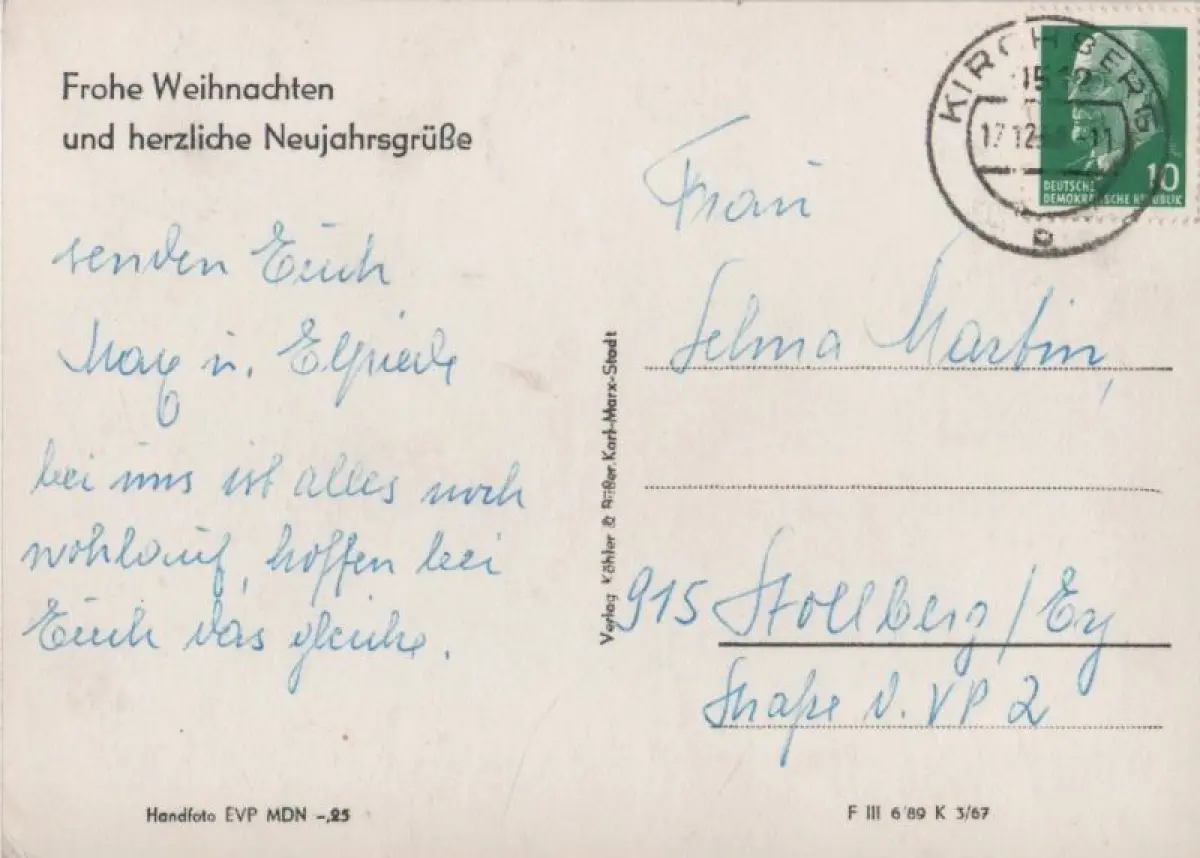 Frohe Weihnachten
und herzliche Neujahrsgrüße
senden Euch
Max u. Elfriede
bei uns ist alles noch
wohlauf, hoffen bei
Euch das gleiche.
Handfoto EVP MDN -,25
Verlag Köhler & Büßer, Karl-Marx-Stadt
KIRCHBERG
17.12. -11
b
10
DEUTSCHE
DEMOKRATISCHE REPUBLIK
Frau
Selma Martin,
915 Stollberg/Erz
Straße d. VP 2
F III 6'89 K 3/67